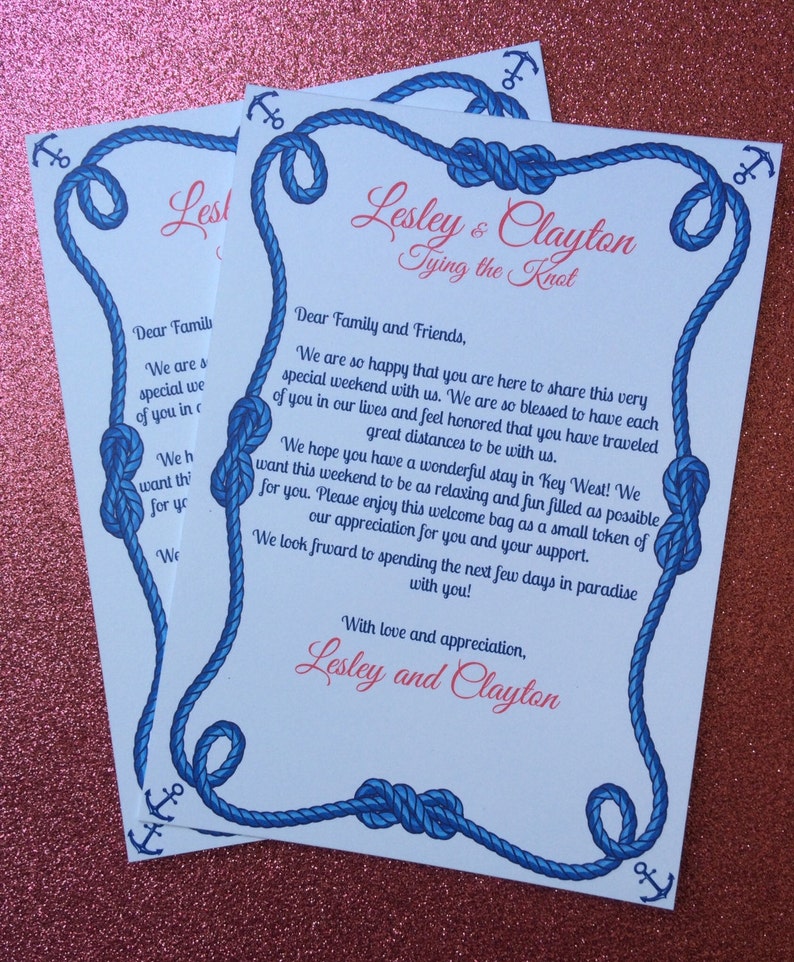 Lesley & Clayton
Tying the Knot
Dear Family and Friends,
We are so happy that you are here to share this very
special weekend with us. We are so blessed to have each
of you in our lives and feel honored that you have traveled
great distances to be with us.
We hope you have a wonderful stay in Key West! We
want this weekend to be as relaxing and fun filled as possible
for you. Please enjoy this welcome bag as a small token of
our appreciation for you and your support.
We look frward to spending the next few days in paradise
with you!
With love and appreciation,
Lesley and Clayton
Lesl
Dear Family
We are so
special week
of you in o
We ho
want this
for yo
We